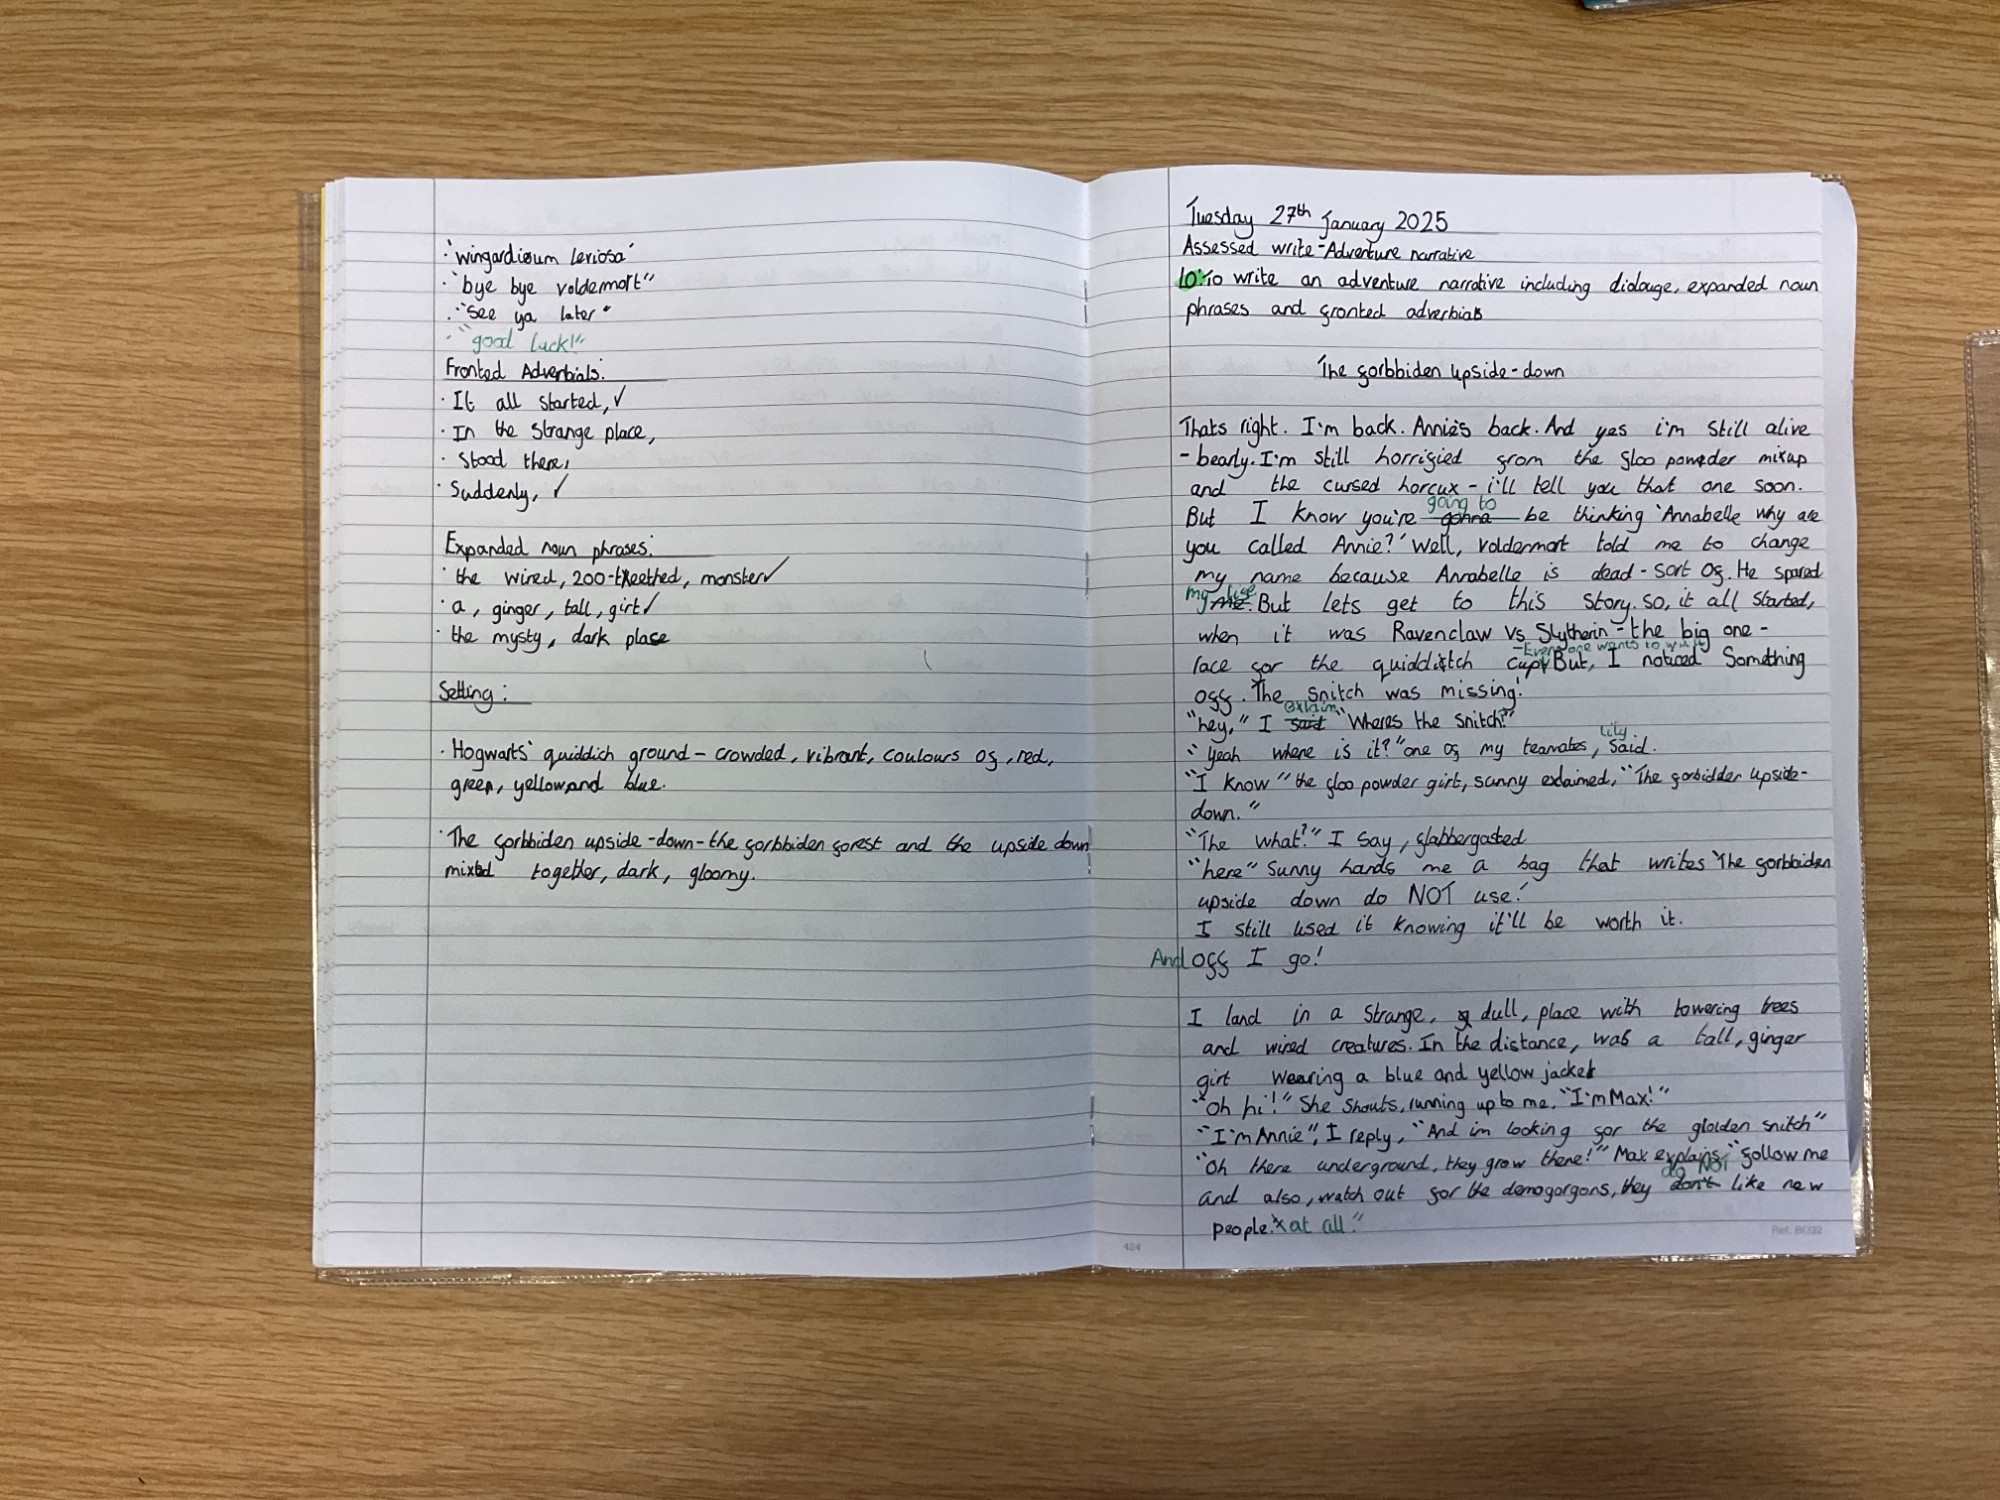 · 'wingardioum leviosa'
· "bye bye voldermort"
· "see ya later"
· "good luck!"
Fronted Adverbials:
· It all started, ✓
· In the strange place,
· Stood there,
· Suddenly, ✓
Expanded noun phrases:
· the wired, 200-teethed, monster ✓
· a, ginger, tall, girl ✓
· the mysty, dark place
Setting:
· Hogwarts' quiddich ground – crowded, vibrant, coulours of, red,
green, yellow and blue.
· The forbbiden upside-down – the forbbiden forest and the upside down
mixed together, dark, gloomy.
Tuesday 27th January 2025
Assessed write - Adventure narrative
LO: To write an adventure narrative including dialouge, expanded noun
phrases and fronted adverbials
The forbbiden upside-down
Thats right. I'm back. Annie's back. And yes i'm still alive
- bearly. I'm still horrified from the floo powder mixup
and the cursed horcux - i'll tell you that one soon.
going to
But I know you're gonna be thinking 'Annabelle why are
you called Annie?' Well, voldermort told me to change
my name because Annabelle is dead - sort of. He spared
my life
me. But lets get to this story. So, it all started,
when it was Ravenclaw vs Slytherin - the big one -
- Everyone wants to win it
face for the quidditch cup. But, I noticed something
off. The snitch was missing!
exlaim
"hey," I said "Wheres the snitch?"
Lily
"yeah where is it?" one of my teamates, said.
"I know" the floo powder girl, sunny exclaimed, "The forbidder upside-
down."
"The what?" I say, flabbergasted
"here" Sunny hands me a bag that writes 'The forbbiden
upside down do NOT use!'
I still used it knowing it'll be worth it.
And off I go!
I land in a strange, dull, place with towering trees
and wired creatures. In the distance, was a tall, ginger
girl wearing a blue and yellow jacket
"Oh hi!" She shouts, running up to me, "I'm Max!"
"I'm Annie", I reply, "And im looking for the glolden snitch"
"Oh there underground, they grow there!" Max explains "follow me
do NOT
and also, watch out for the demogorgons, they don't like new
people. at all."
424
Ref. BC02